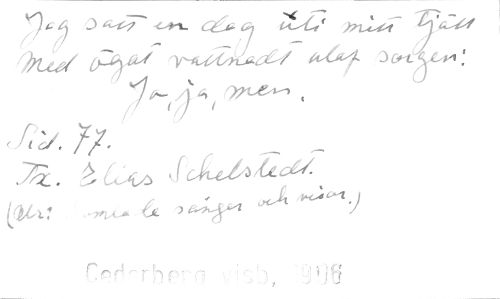 Jag satt en dag uti mitt tjäll
med ögat vattnadt utaf sorgen:
Ja, ja, men.
Sid. 77.
Tx. Elias Schelstedt.
(Ur: Samlade sånger och visor.)
Cederberg visb, 1906